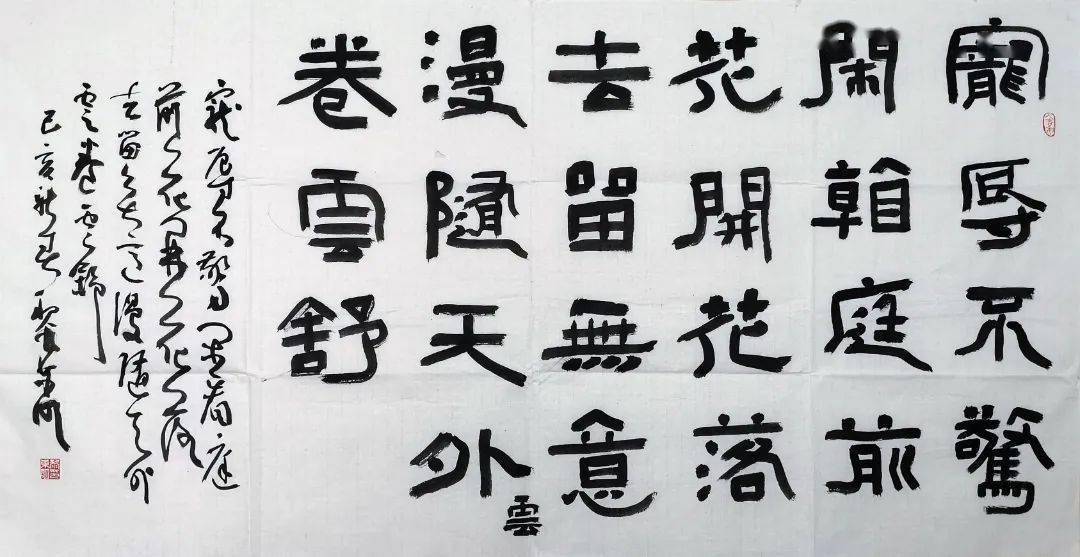 寵辱不驚
閑看庭前
花開花落
去留無意
漫隨天外雲
卷雲舒
寵辱不驚閑看庭
前花開花落
去留無意漫隨天外
雲卷雲舒
己亥新春